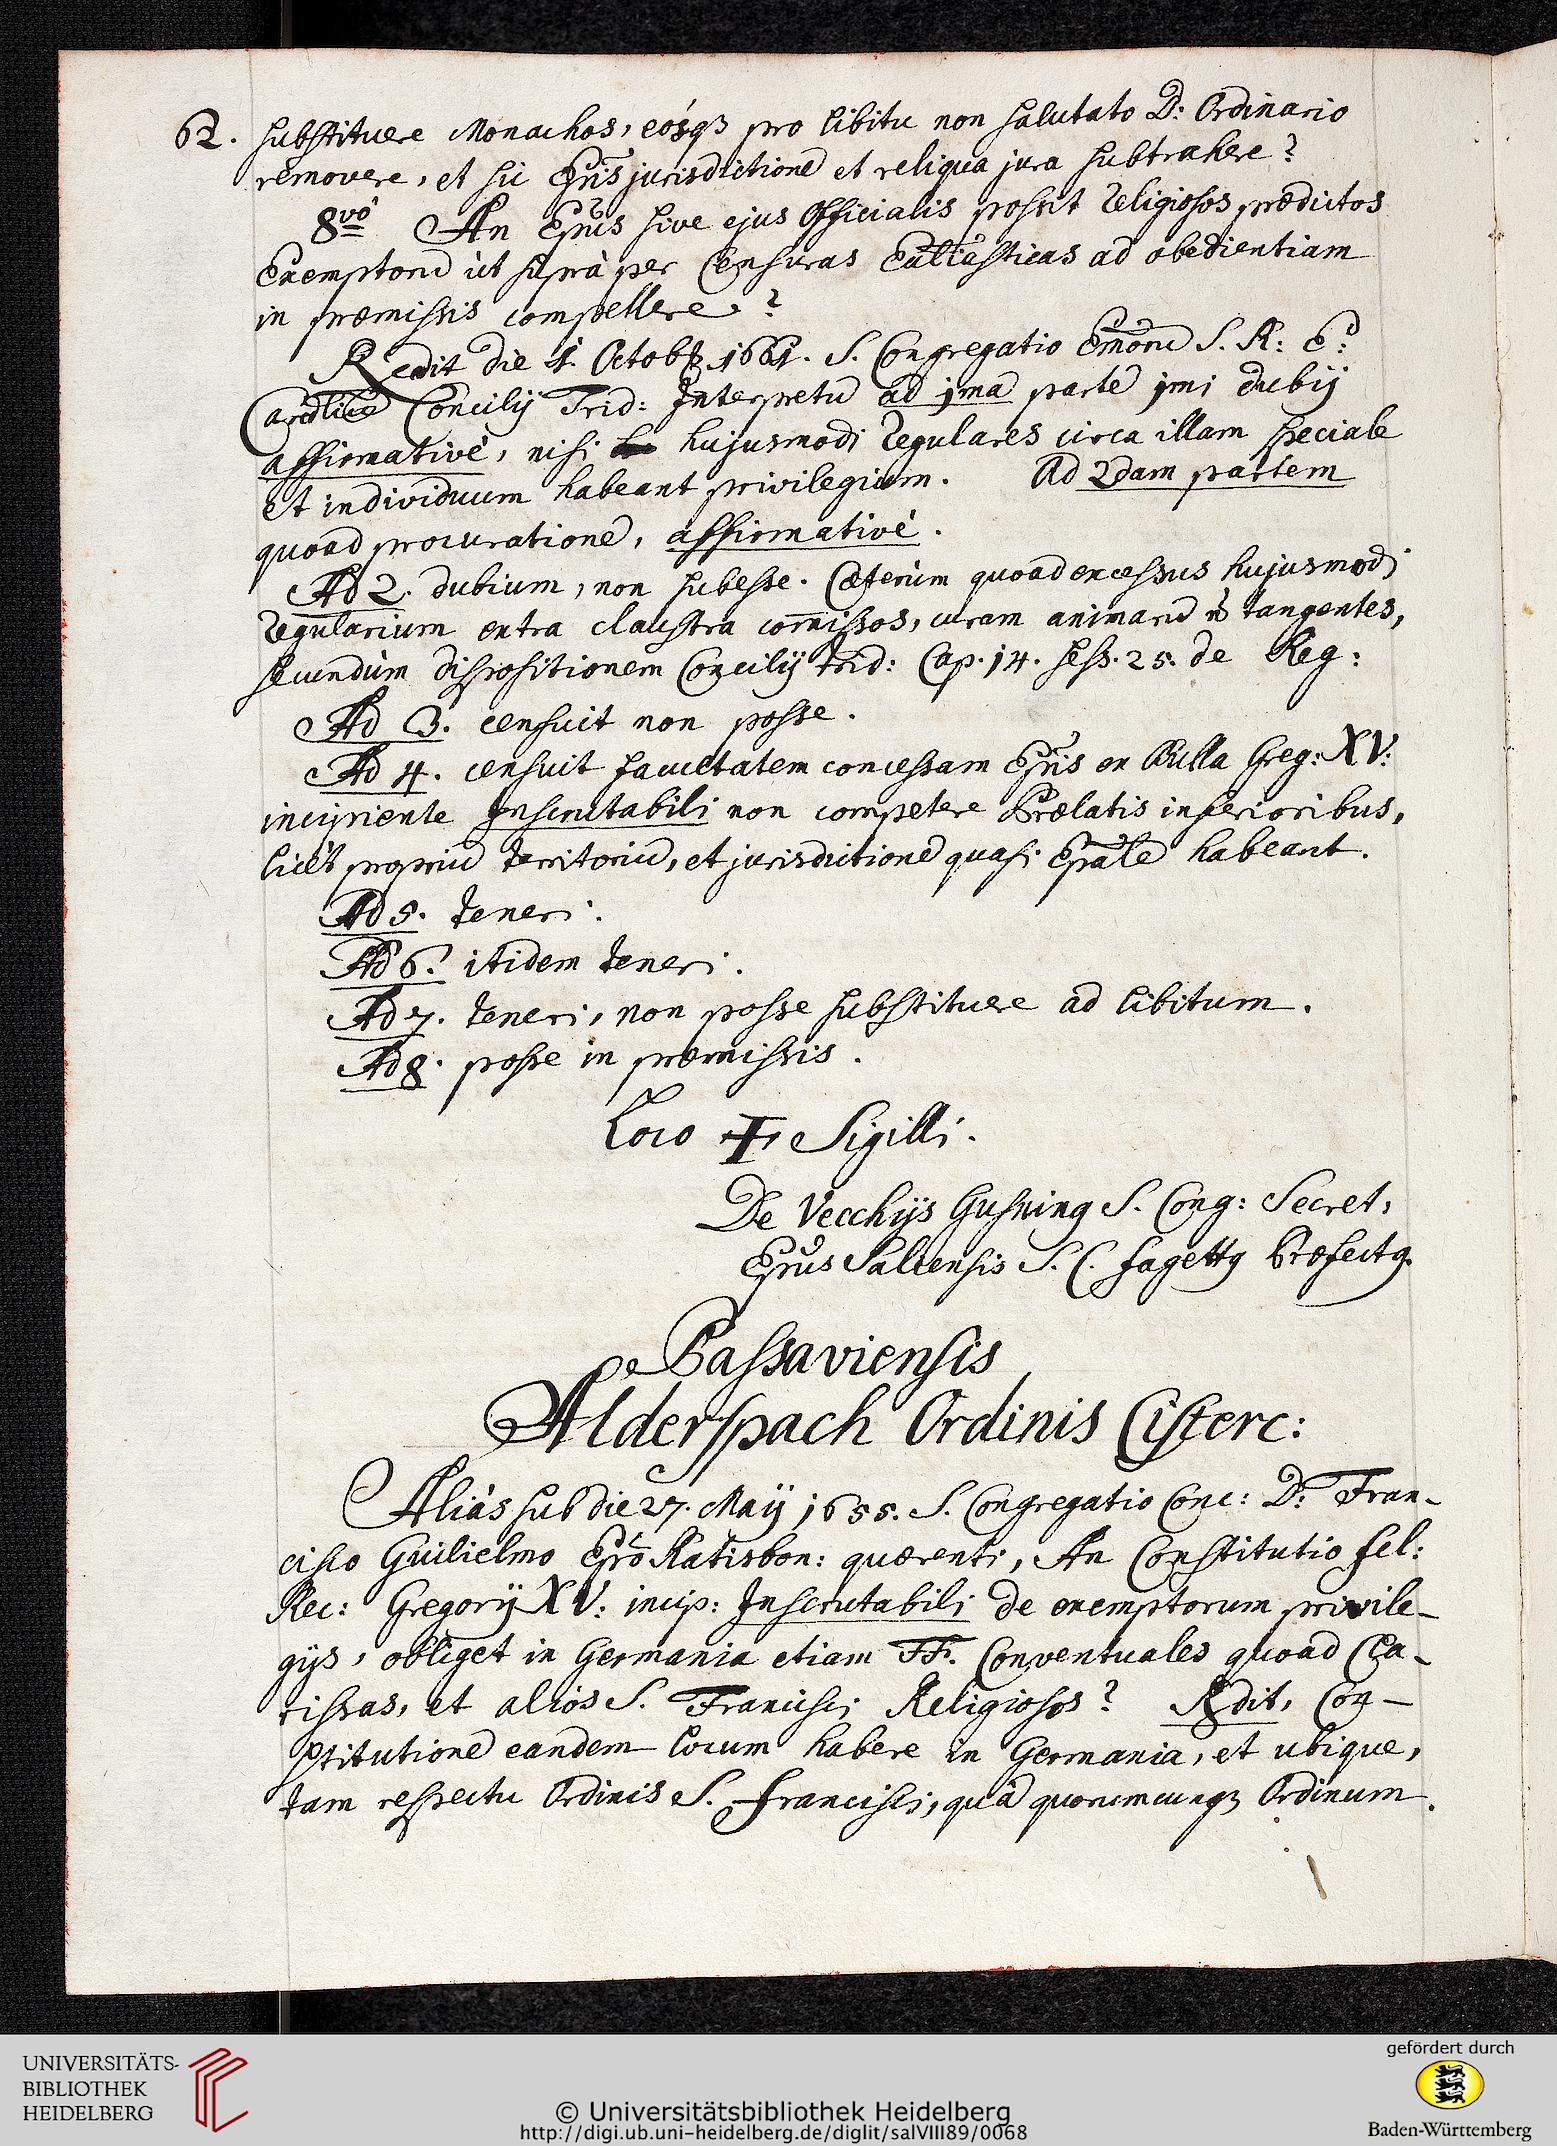 62. substituere Monachos, eósq3 pro libitu non salutato D: Ordinario
removere, et sic Epīs jurisdictionē et reliqua jura subtrahere?
8vò An Epūs sive ejus Officialis possit Religiosos prædictos
Exemptorū ùt suprà per Censuras Ecclīasticas ad obedientiam
in præmissis compellere?
Rēdit die 1. Octobr. 1661. S. Congregatio Emōrū S. R: E:
Cardliū Concilÿ Trid: Interpretū ad jma partē jmi dubÿ
affirmativè, nisi hujusmodi Regulares circa illam speciale
et individuum habeant privilegium. Ad 2dam partem
quoad procurationē, affirmativè.
Ad 2. dubium, non subesse. Cæterùm quoad excessus hujusmodi
Regularium extra claustra com̄issos, curam animarū ñ tangentes,
secundùm dispositionem Concilÿ Trid: Cap. 14. sess. 25. de Reg:
Ad 3. censuit non posse.
Ad 4. censuit facultatem concessam Epīs ex Bulla Greg: XV:
incipiente Inscrutabili non competere Prælatis inferioribus,
licèt propriū territoriū, et jurisdictionē quasi Epālē habeant.
Ad 5. teneri.
Ad 6. itidem teneri.
Ad 7. teneri, non posse substituere ad libitum.
Ad 8. posse in præmissis.
Loco ✝ Sigilli.
De Vecchÿs S. Cong: Secret,
Epūs S. C. Præfectq.
Passaviensis
Alderspach Ordinis Cisterc:
Aliàs sub die 27. Maÿ 1655. S. Congregatio Conc: D: Fran-
cisco Guilielmo Epō Ratisbon: quærenti, An Constitutio fel:
Rec: Gregorÿ XV: incip: Inscrutabili de exemptorum privile-
gÿs, obliget in Germania etiam FF. Conventuales quoad Cla-
rissas, et alios S. Francisci Religiosos? Rdit, Con-
stitutionē eandem locum habere in Germania, et ubique,
tam respectu Ordinis S. Francisci, quā quorumcunq3 Ordinum.
UNIVERSITÄTS-
BIBLIOTHEK
HEIDELBERG
© Universitätsbibliothek Heidelberg
http://digi.ub.uni-heidelberg.de/diglit/salVIII89/0068
gefördert durch
Baden-Württemberg